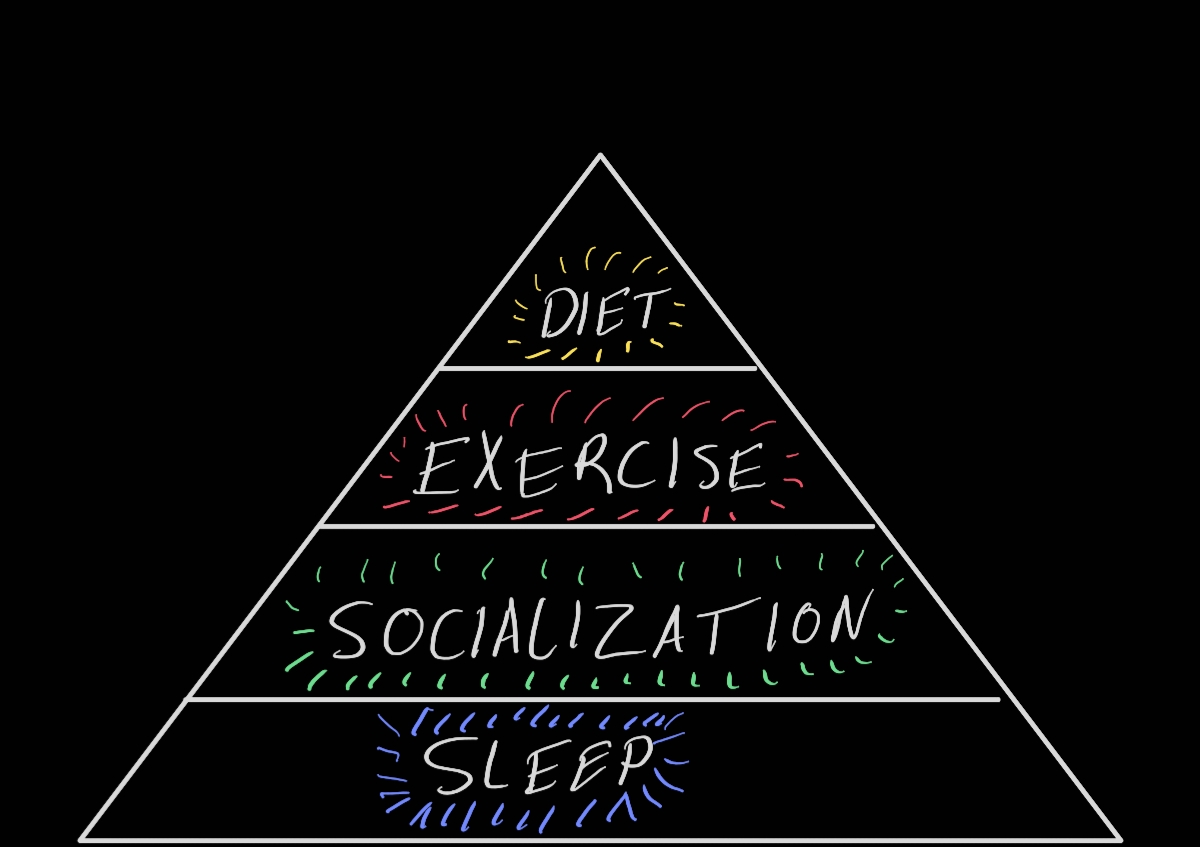 DIET
EXERCISE
SOCIALIZATION
SLEEP